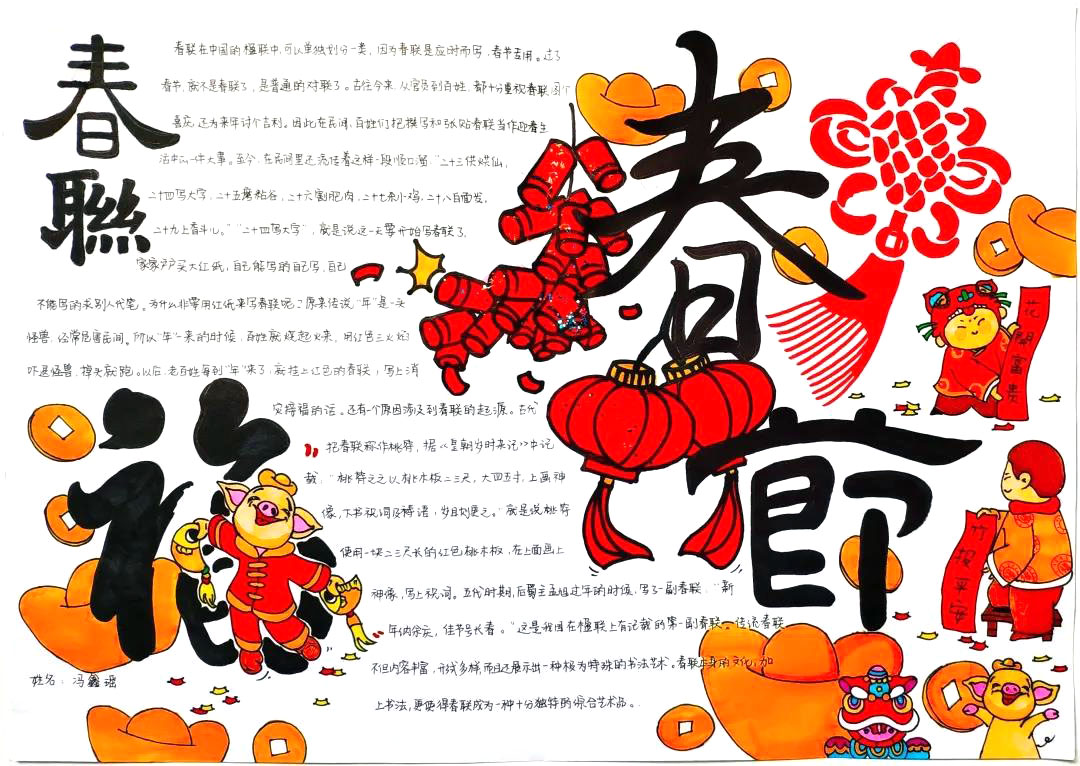 春聯
春节
福
春联在中国的楹联中,可以单独划分一类,因为春联是应时而写,春节专用。过了
春节,就不是春联了,是普通的对联了。古往今来,从官员到百姓,都十分重视春联,图个
喜庆,还为来年讨个吉利。因此在民间,百姓们把撰写和张贴春联当作迎春生
活中的一件大事。至今,在民间里还流传着这样一段顺口溜:“二十三供灶仙,
二十四写大字,二十五磨粘谷,二十六割肥肉,二十七杀小鸡,二十八白面发,
二十九上香斗儿。”“二十四写大字”,就是说这一天要开始写春联了,
家家户户买大红纸,自己能写的自己写,自己
不能写的求别人代笔。为什么非要用红纸来写春联呢?原来传说“年”是一头
怪兽,经常危害民间。所以“年”一来的时候,百姓就烧起火来,用红色三火焰
吓退怪兽,掉头就跑。以后,老百姓每到“年”来了,就挂上红色的春联,写上消
灾接福的话。还有一个原因涉及到春联的起源。古代
把春联称作桃符,据《皇朝岁时杂记》中记
载,“桃符之之以桃木板二三尺,大四五寸,上画神
像,下书祝词及祷语,岁旦则更之。”就是说桃符
使用一块二三尺长的红色桃木板,在上面画上
神像,写上祝词。五代时期,后蜀主孟昶过年的时候,写了一副春联,“新
年纳余庆,佳节号长春。”这是我国在楹联上有记载的第一副春联。传说春联
不但内容丰富,形式多样,而且还展示出一种极为特殊的书法艺术。春联本身的文化,加
上书法,更使得春联成为一种十分独特的综合艺术品。
花开富贵
竹报平安
姓名:冯鑫谣